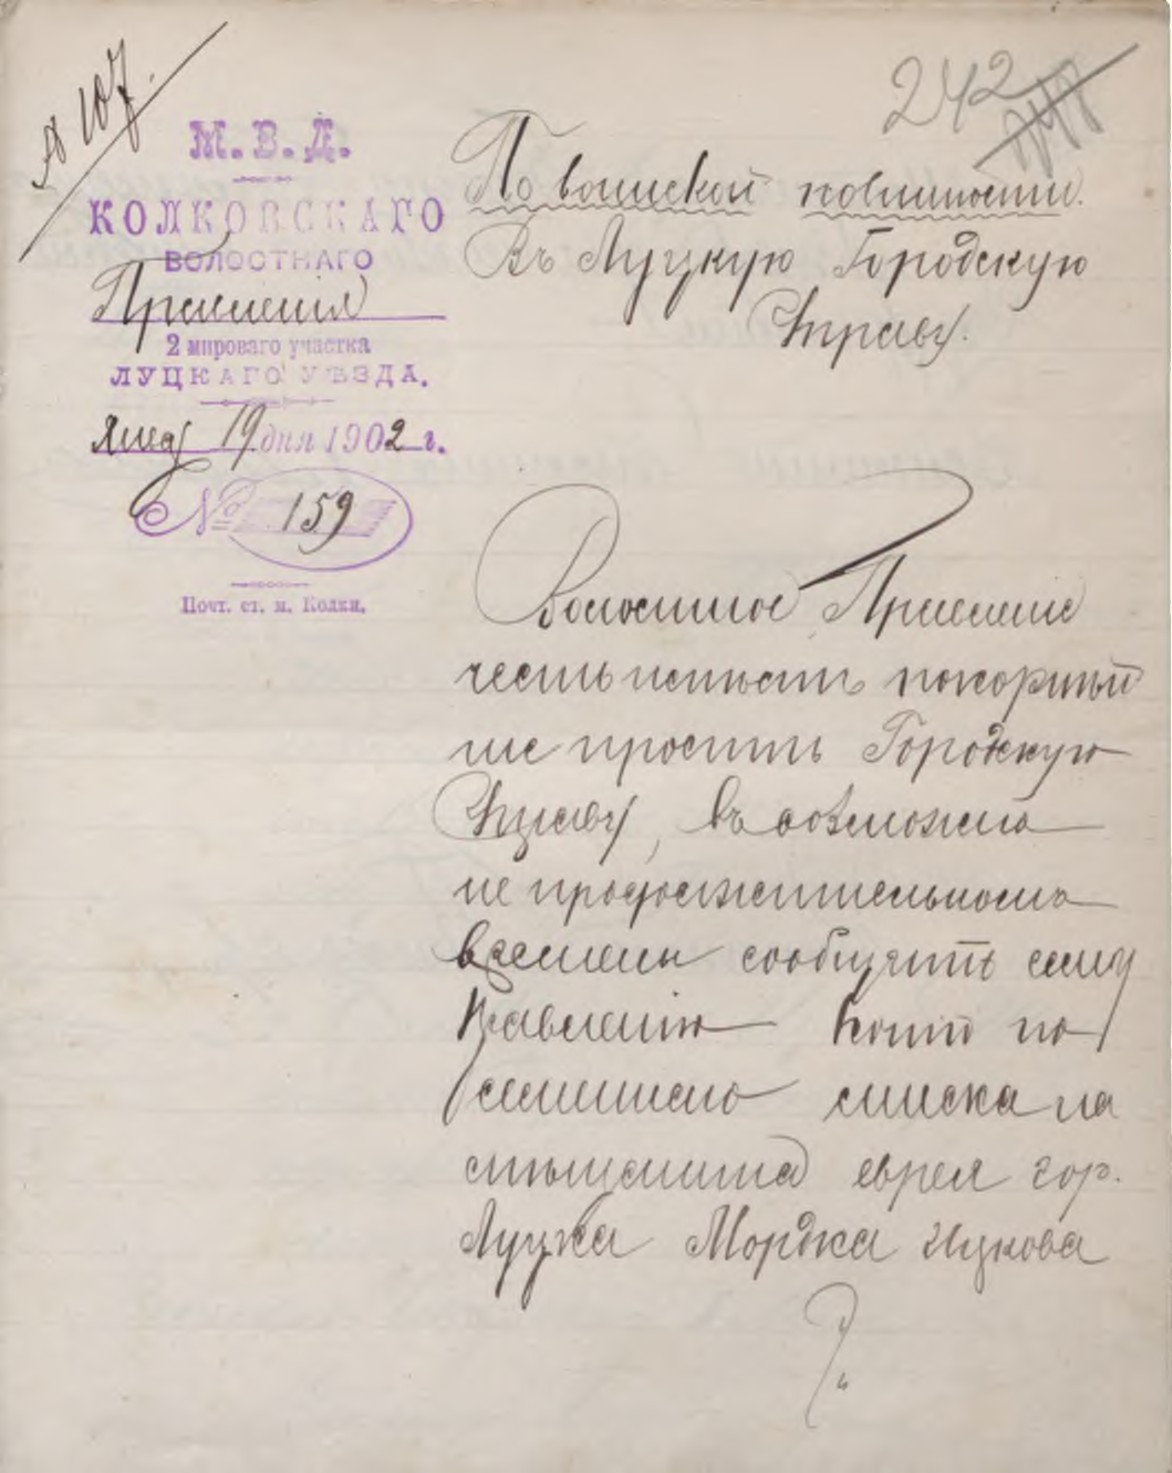 № 107.
242
М. В. Д.
КОЛКОВСКАГО
ВОЛОСТНАГО
Правленія
2 мироваго участка
ЛУЦКАГО УѢЗДА.
Янва 19 дня 1902 г.
№ 159
Почт. ст. м. Колки.
По воинской повинности.
Въ Луцкую Городскую
Управу.
Волостное Правленіе
честь имѣетъ покорнѣй
ше просить Городскую
Управу, въ возможно
не продолжительномъ
времени сообщить сему
Правленію копію по
семейнаго списка на
мѣщанина еврея гор.
Луцка Мордка Ицкова